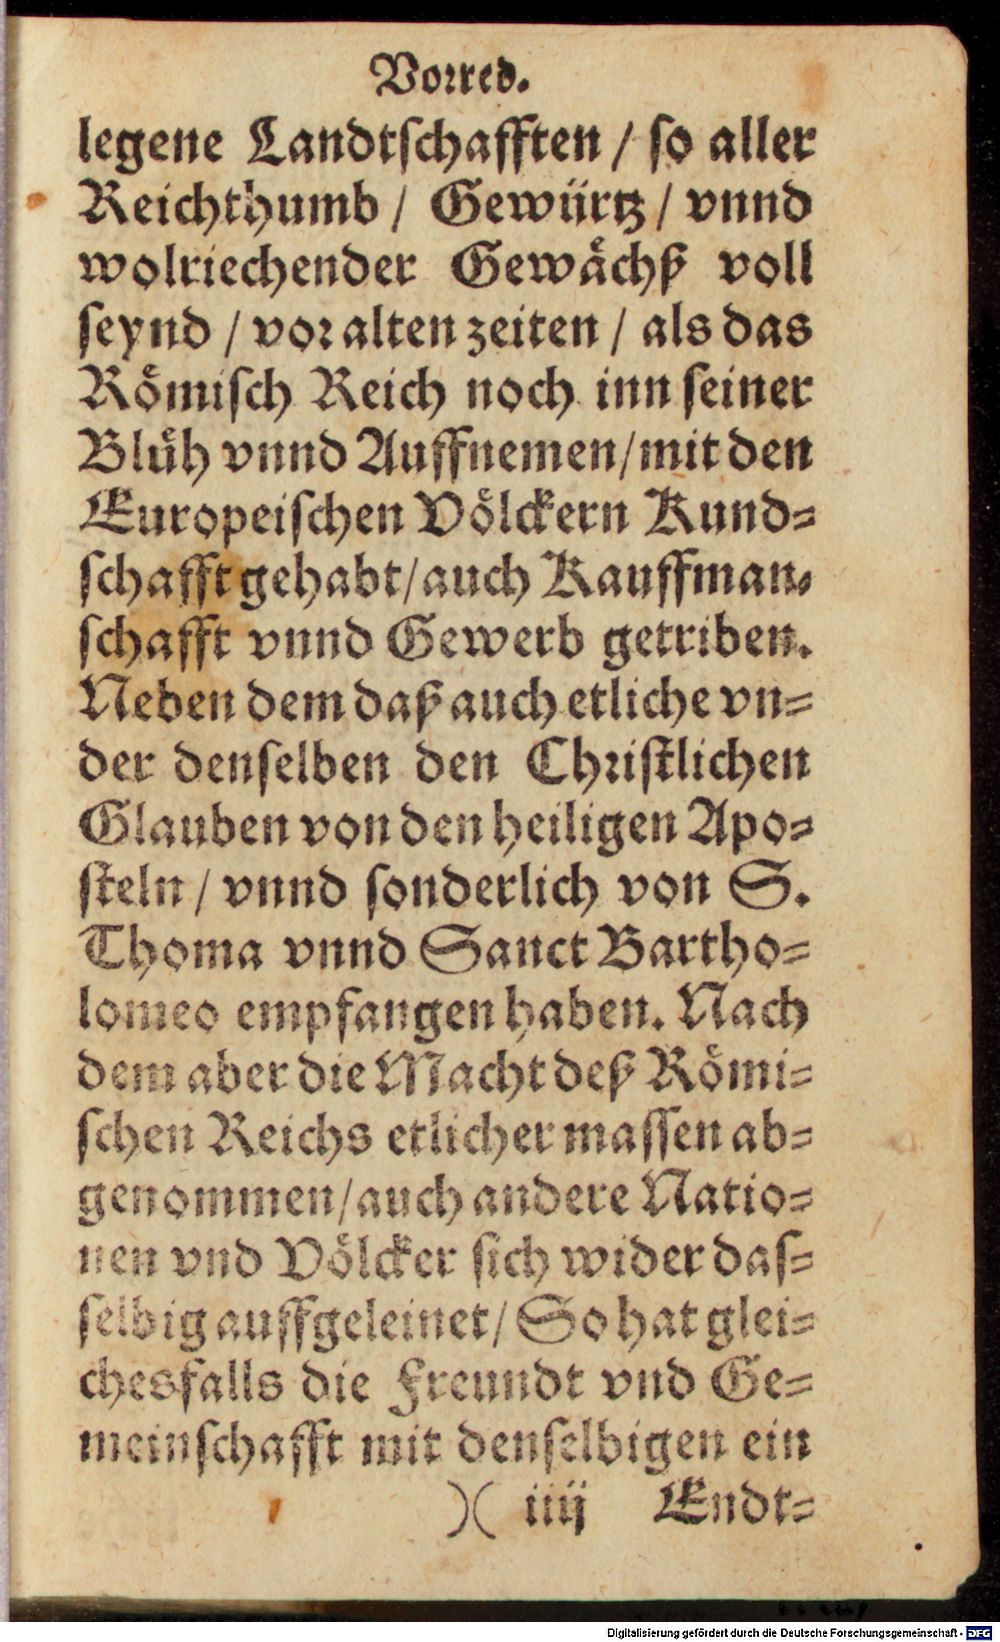 Vorred.
legene Landtschafften / so aller
Reichthumb / Gewürtz / vnnd
wolriechender Gewächß voll
seynd / vor alten zeiten / als das
Römisch Reich noch inn seiner
Blüh vnnd Auffnemen / mit den
Europeischen Völckern Kund-
schafft gehabt / auch Kauffman-
schafft vnnd Gewerb getriben.
Neben dem daß auch etliche vn-
der denselben den Christlichen
Glauben von den heiligen Apo-
steln / vnnd sonderlich von S.
Thoma vnnd Sanct Bartho-
lomeo empfangen haben. Nach
dem aber die Macht deß Römi-
schen Reichs etlicher massen ab-
genommen / auch andere Natio-
nen vnd Völcker sich wider das-
selbig auffgeleinet / So hat glei-
chesfalls die Freundt vnd Ge-
meinschafft mit denselbigen ein
)( iiij Endt-
Digitalisierung gefördert durch die Deutsche Forschungsgemeinschaft - DFG